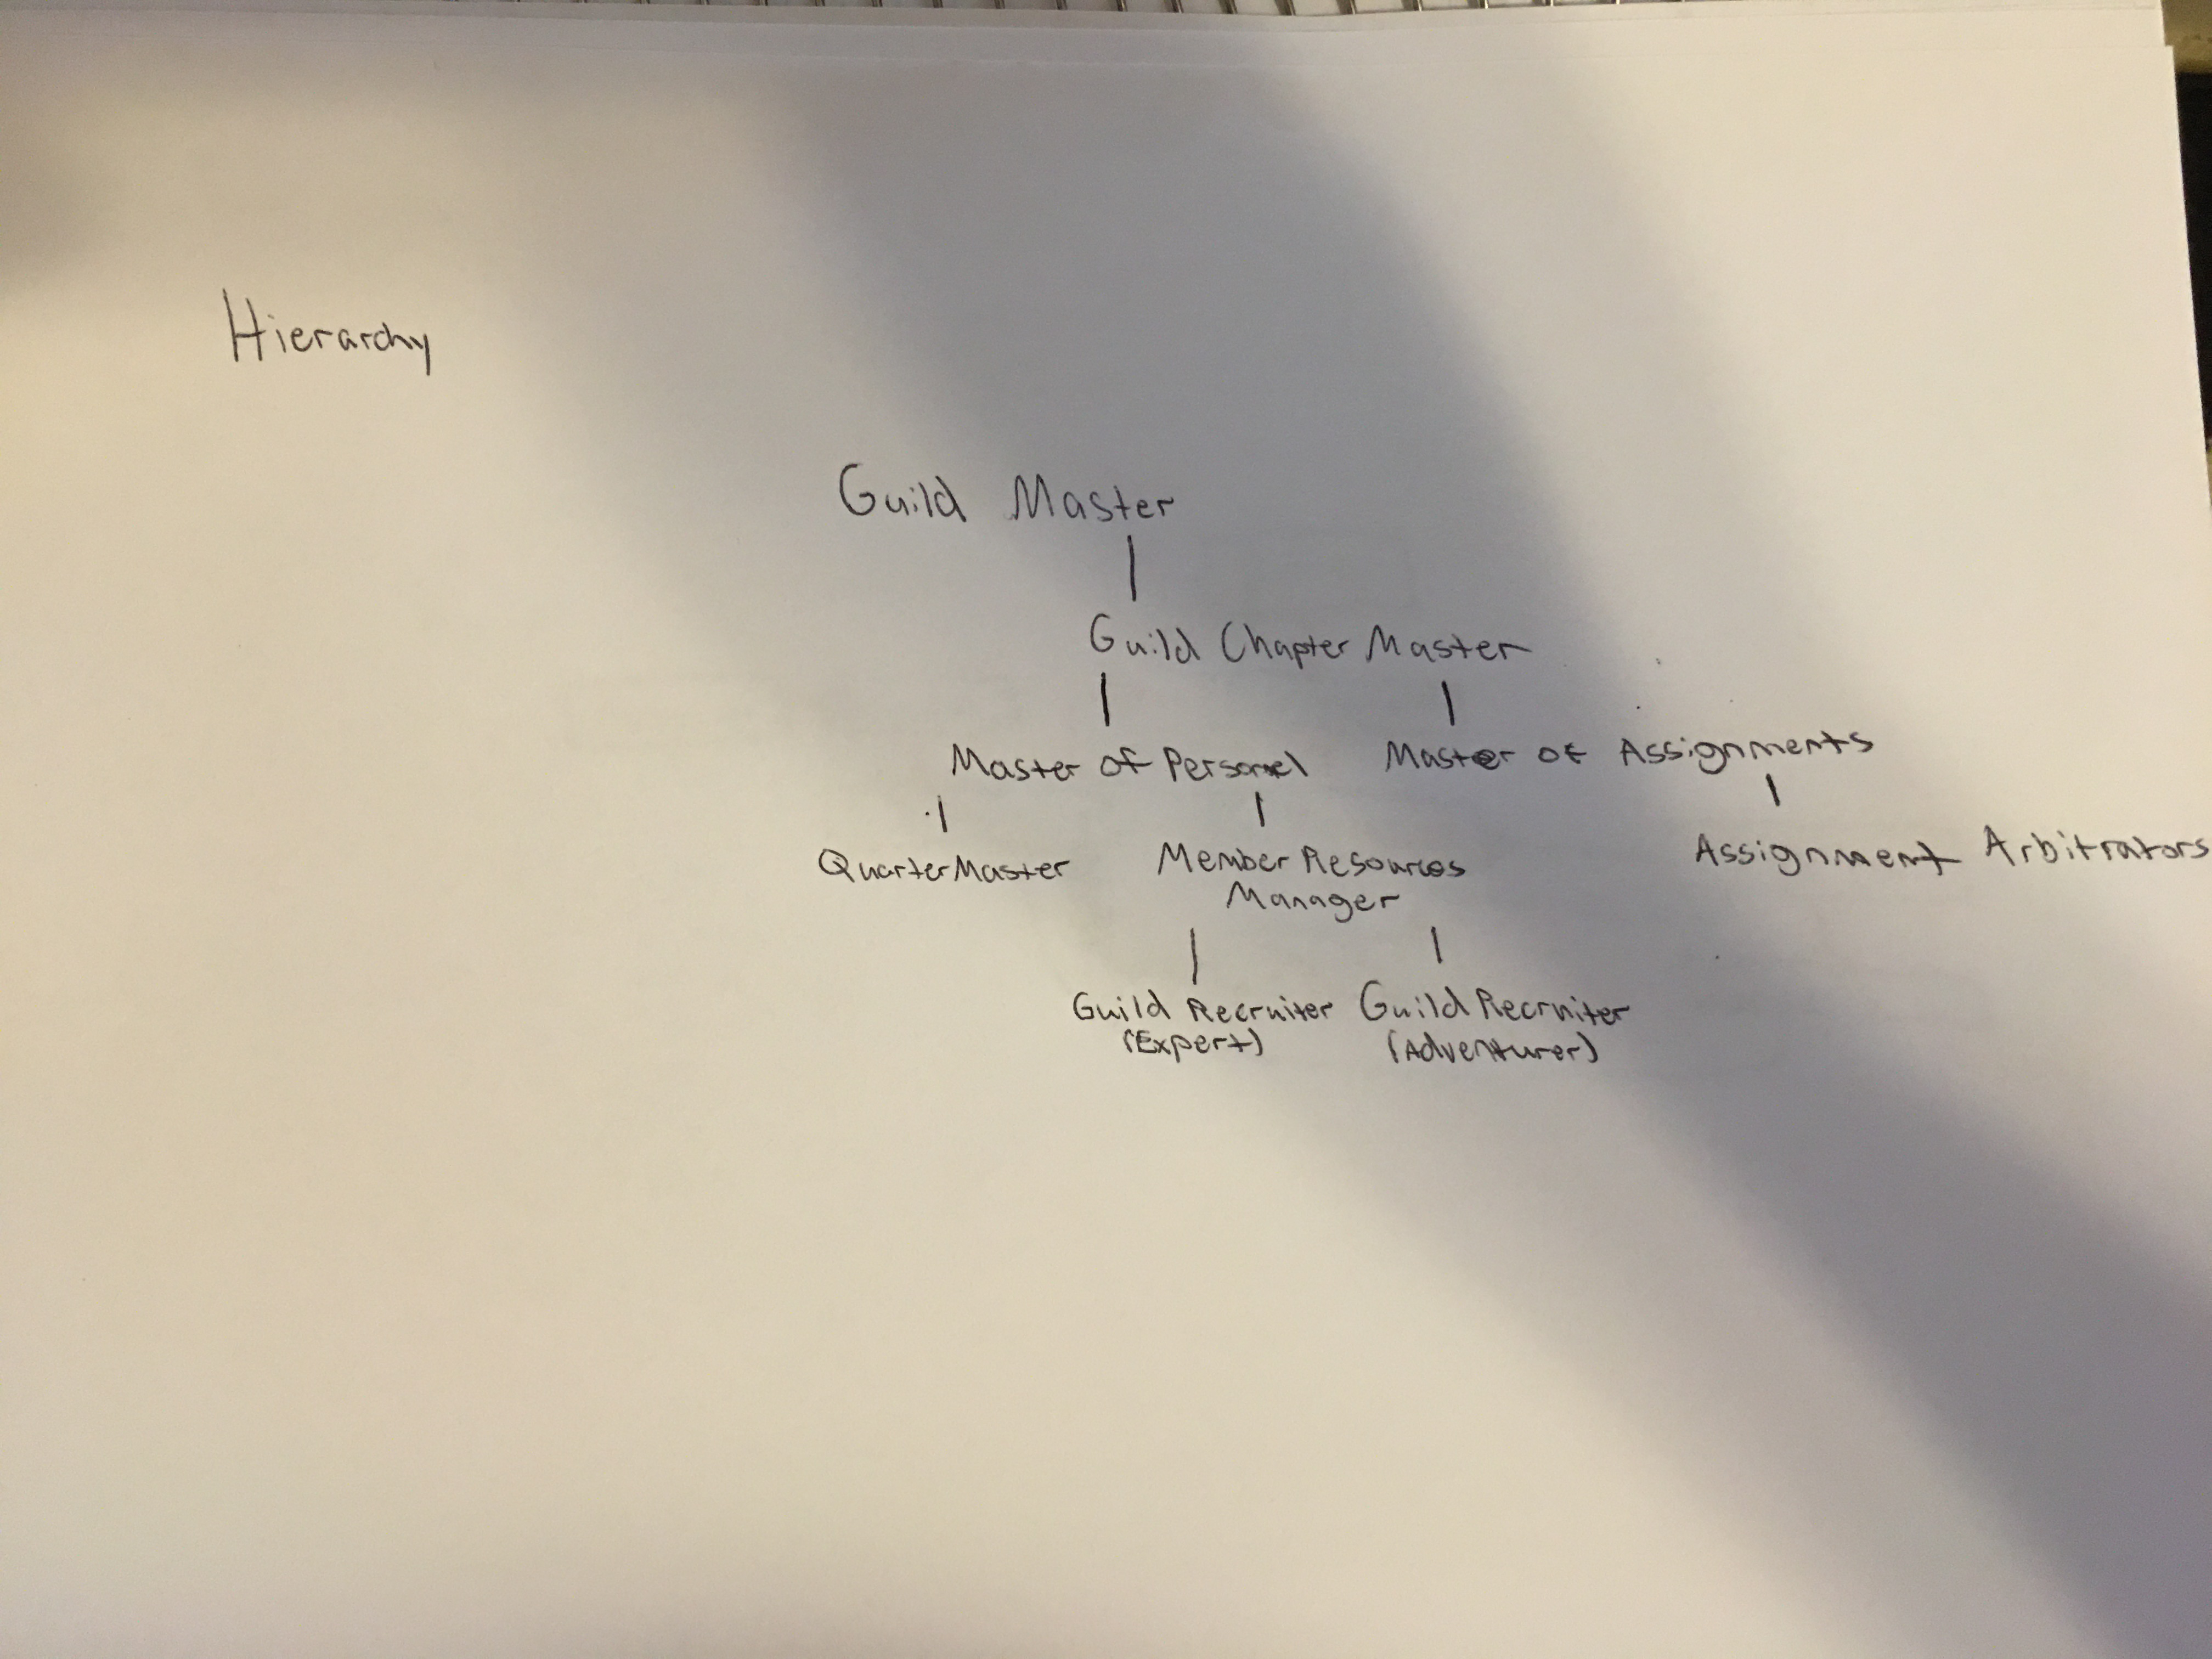 Hierarchy
Guild Master
Guild Chapter Master
Master of Personel Master of Assignments
QuarterMaster Member Resources Assignment Arbitrators
Manager
Guild Recruiter Guild Recruiter
(Expert) (Adventurer)